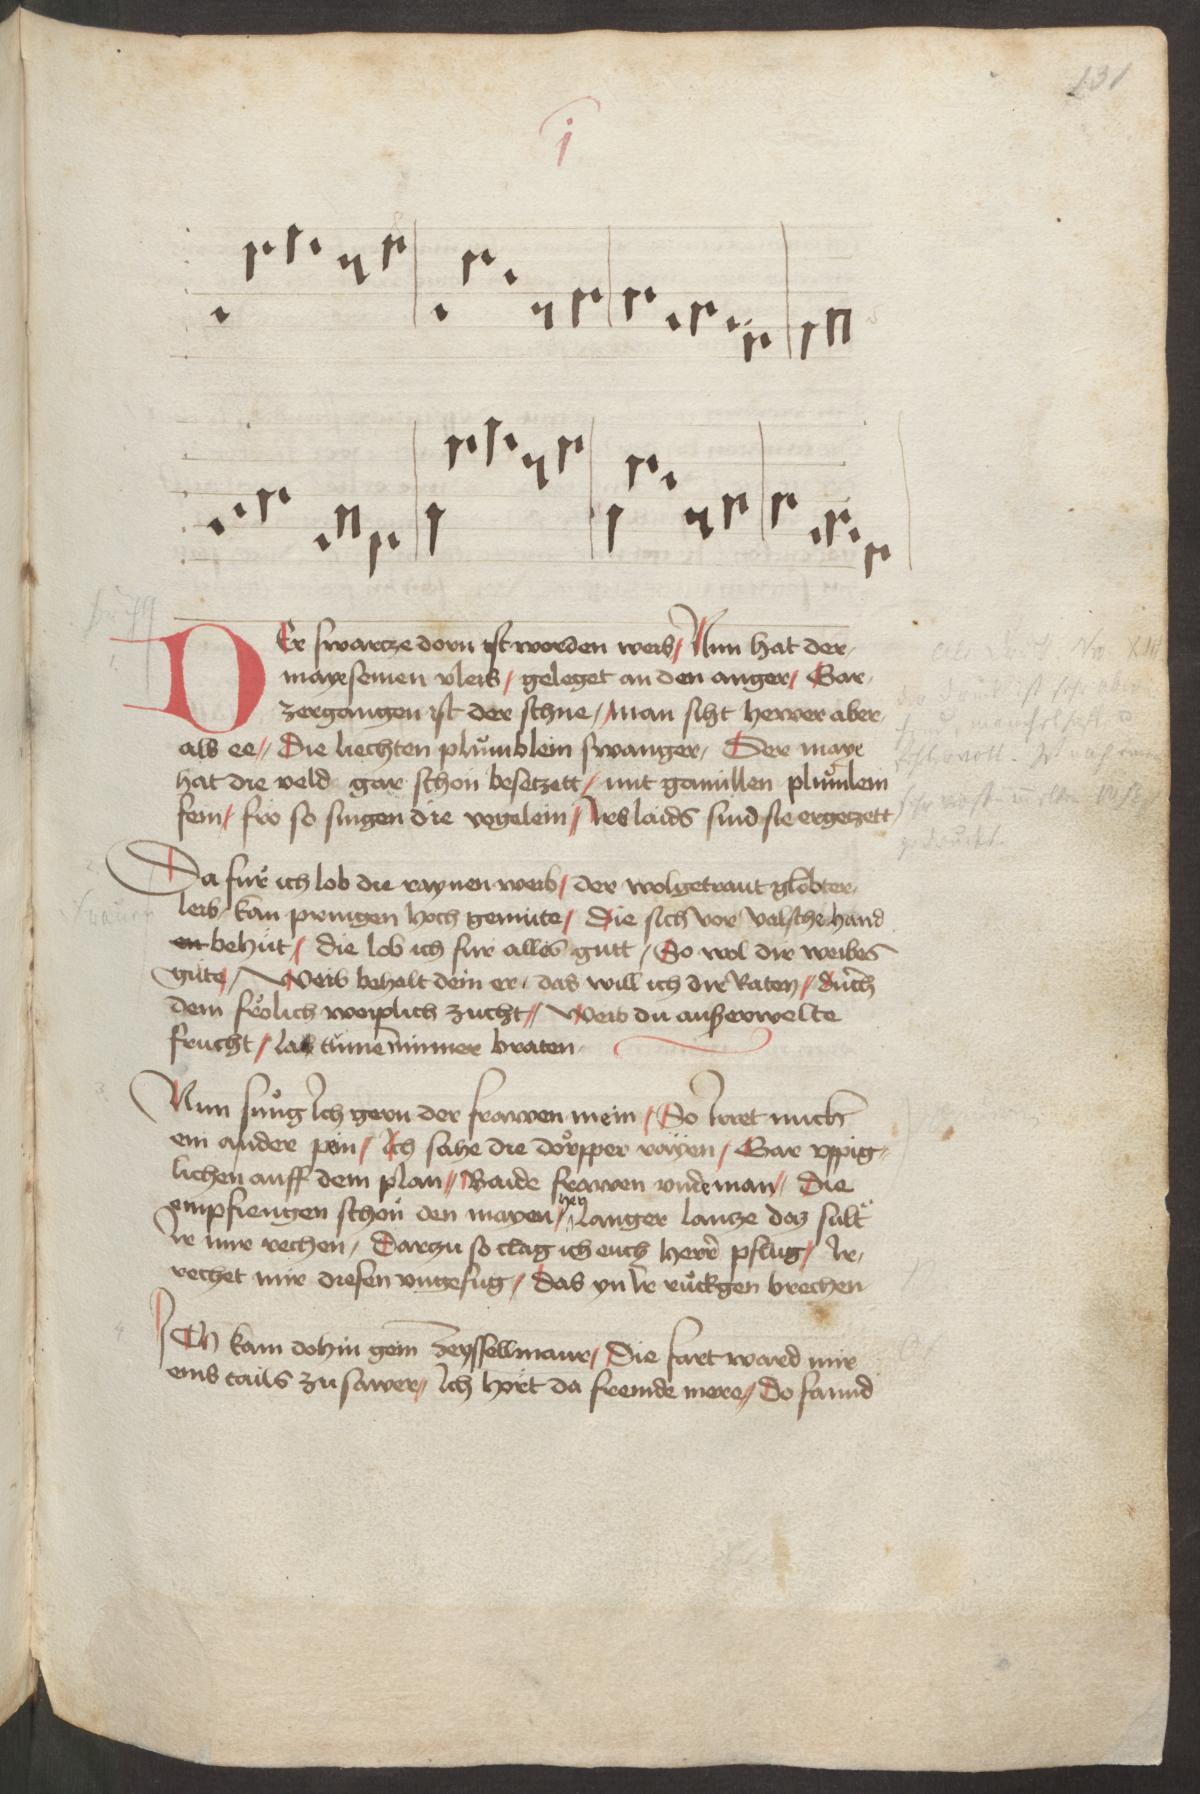 131
j
DEr swartze dorn ist worden weis / Nun hat der
mayesemen vleis / geleget an den anger / Gar
zergangen ist der schne / man siht herwer aber
als ee // Die liechten plůmblein swanger / Der maye
hat die veld gar schon besetzett / mit gamillen plůmlein
fein / fro so singen die vogelein / Irs laids sind sie ergetzett
Da fur ich lob die raynen weib / der wolgetraut globter
leib / kan pringen hoch gemüte / Die sich vor valscher hand
behüt / die lob ich fur alles gutt / So wol dir weibes
güte / Weib behalt dein er / das will ich dir Raten / durch
dein frölich weiplich zucht // Weib du außerwelte
frucht / las nimer braten
Nun sung Ich gern der frawen mein / So Irret mich
ein ander pein / Ich sahe die dörpper rayen / Gar vppig
lichen auff dem plan // Baide frawen vnde man // Die
empfiengen schon den mayen / hey langer lantze daz sult
Ir mir rechen / Darzu so clag ich euch herre pflug / Ir
rechet mir diesen vngefug / Das yn Ir ruckgen brechen
ICh kam dohin gein Zeyssellmaur / Die fart ward mir
eins tails zu sawer / Ich hört da fremde mere // Do fannd